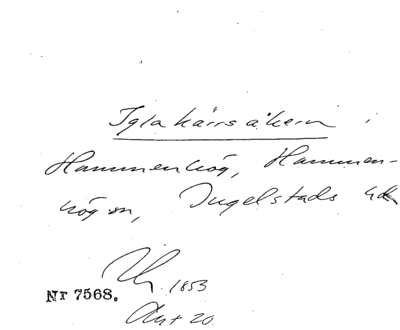 Iglakärrsåkern i
Hammenhög, Hammen-
hög sn, Ingelstads hd
1853
Nr 7568.
Akt 20